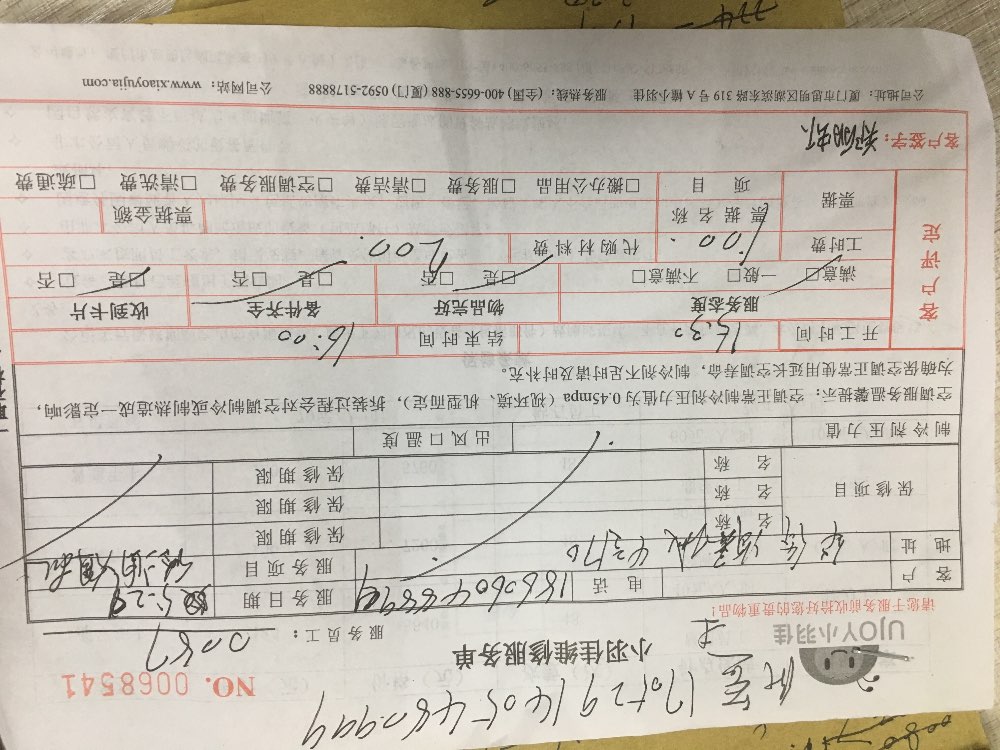 NO. 0068541
UJOY小羽佳
小羽佳维修服务单
服务员工： 0087
请您于服务前收拾好您的贵重物品！
客 户 电 话 服务日期
地 址 服务项目
保修项目 名 称 保修期限
名 称 保修期限
名 称 保修期限
制冷剂压力值 出风口温度
空调服务温馨提示：空调正常制冷剂压力值为0.45mpa（视环境、机型而定），拆装过程会对空调制冷或制热造成一定影响，
为确保空调正常使用延长空调寿命，制冷剂不足时请及时补充。
客户评定
开工时间 15:30 结束时间 16:00
服务态度 物品完好 备件齐全 收到卡片
满意□ 一般□ 不满意□ □是 □否 □是 □否 □是 □否
工时费 100. 代购材料费 200.
票据 票据名称 票据金额
项 目 □搬办公用品 □服务费 □清洁费 □空调服务费 □清洗费 □疏通费
客户签字：
公司地址：厦门市思明区湖滨东路 319 号 A 幢小羽佳 服务热线：(全国) 400-6655-888 (厦门) 0592-5178888 公司网站：www.xiaoyujia.com